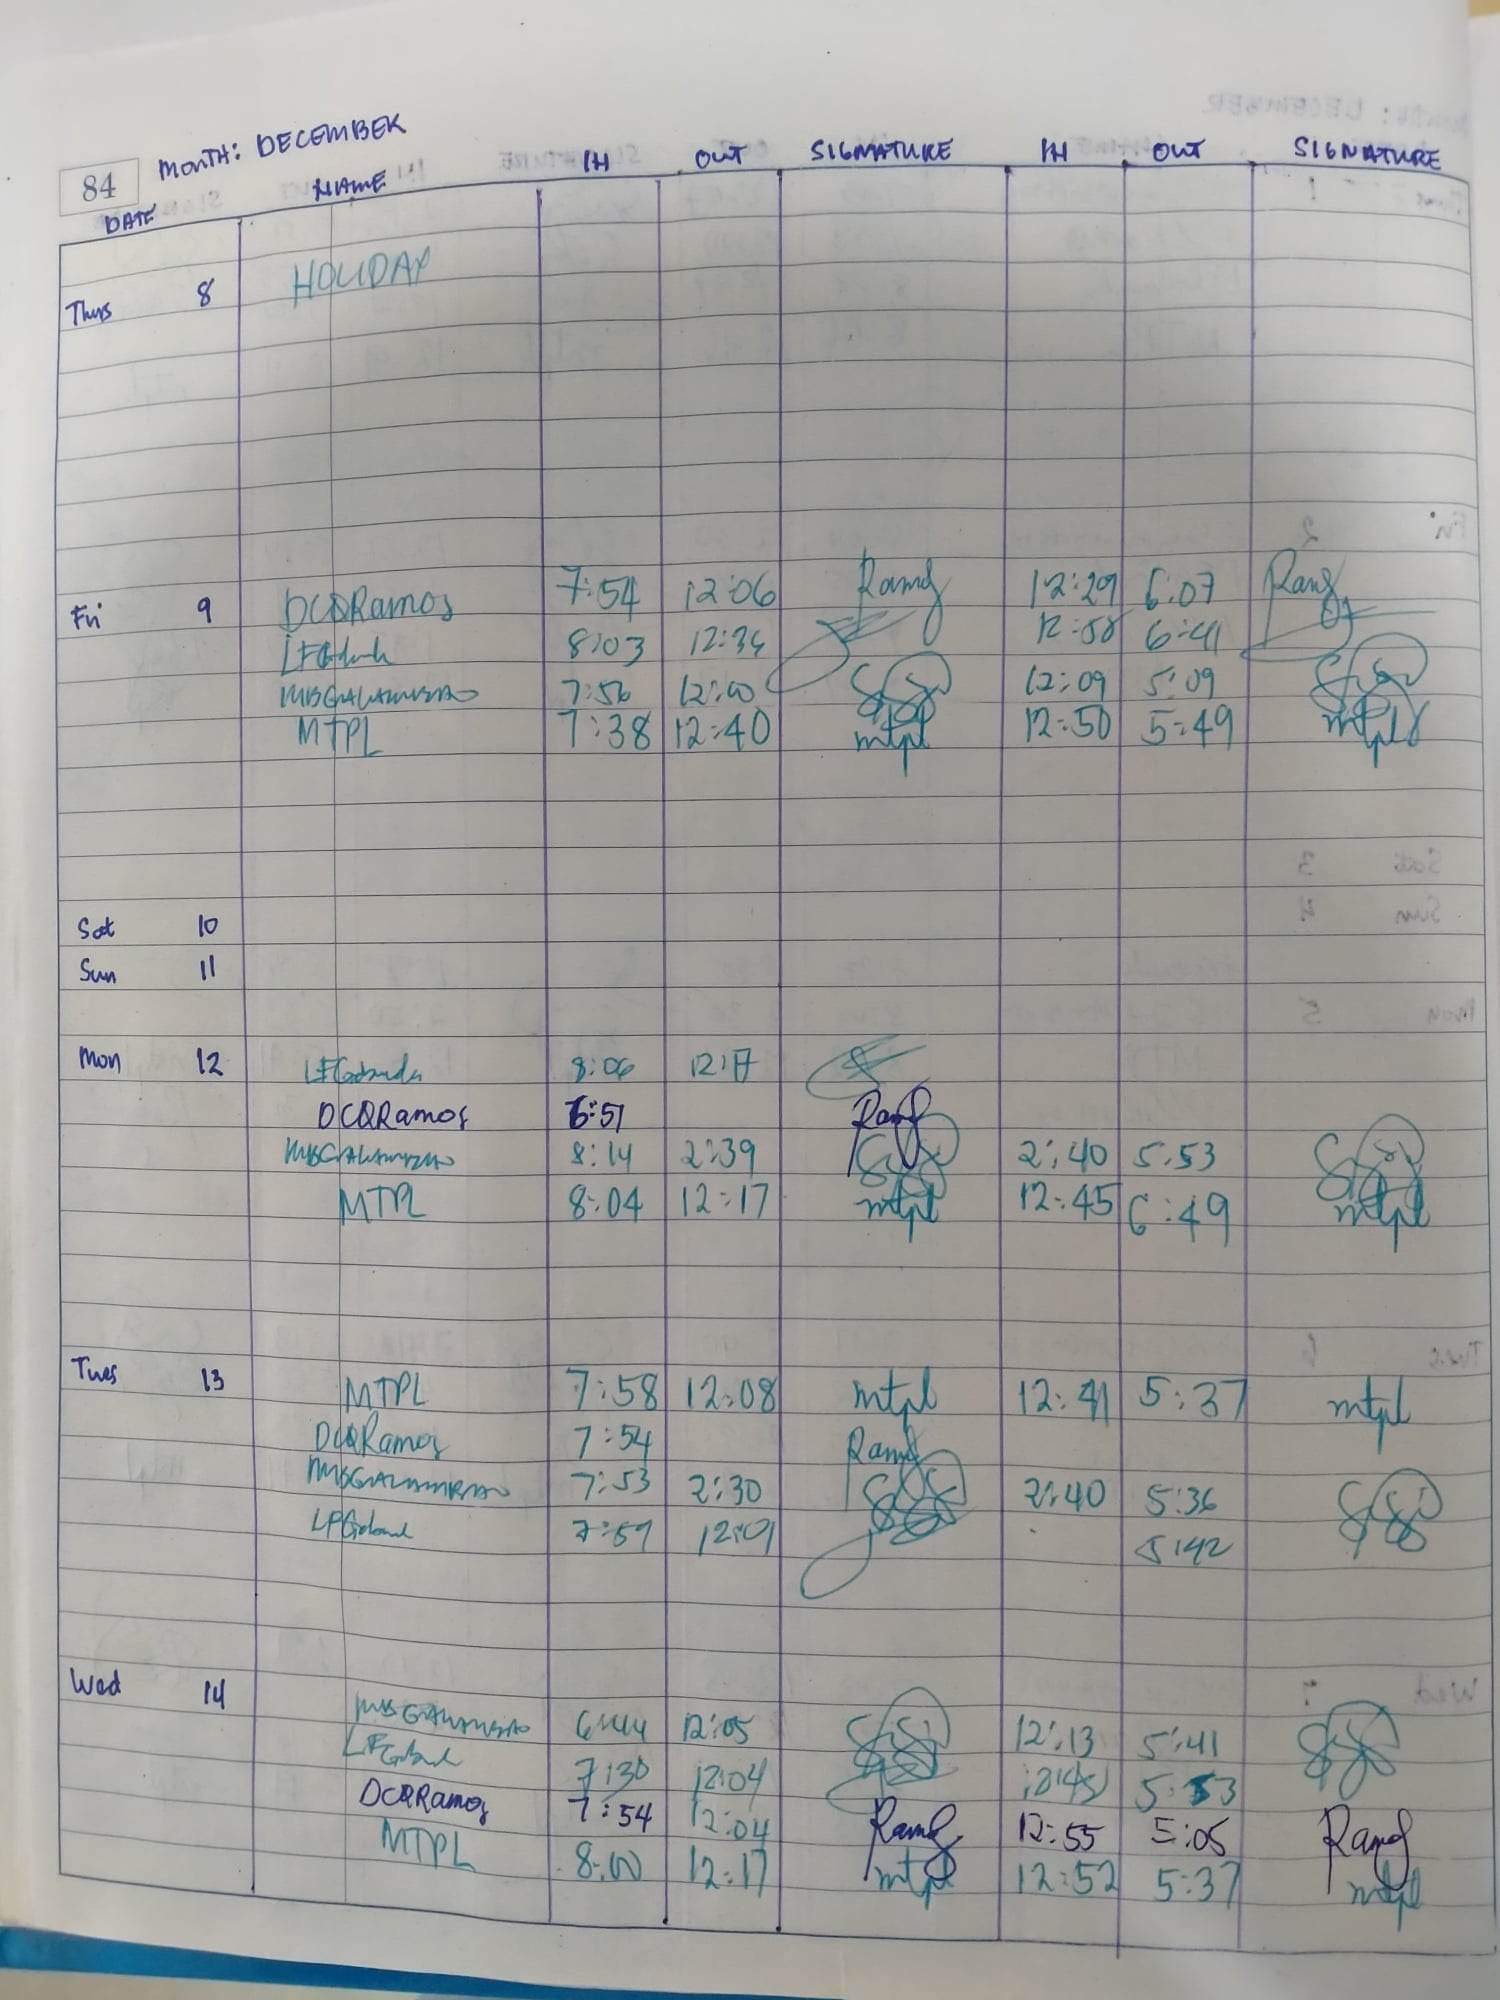 84 MONTH: DECEMBER
DATE NAME IN OUT SIGNATURE IN OUT SIGNATURE
Thurs 8 HOLIDAY
Fri 9 DCQRamos 7:54 12:06 Ramos 12:29 6:07 Ramos
8:03 12:34 12:58 6:41
7:56 12:00 12:09 5:09
MTPL 7:38 12:40 mtpl 12:50 5:49 mtpl
Sat 10
Sun 11
Mon 12 8:06 12:17
DCQRamos 6:51 Ramos
8:14 2:39 2:40 5:53
MTPL 8:04 12:17 mtpl 12:45 6:49 mtpl
Tues 13 MTPL 7:58 12:08 mtpl 12:41 5:37 mtpl
DCQRamos 7:54 Ramos
7:53 2:30 2:40 5:36
7:59 12:09 5:42
Wed 14 6:44 12:05 12:13 5:41
7:30 12:04 12:45 5:53
DCQRamos 7:54 12:04 Ramos 12:55 5:05 Ramos
MTPL 8:00 12:17 mtpl 12:52 5:37 mtpl